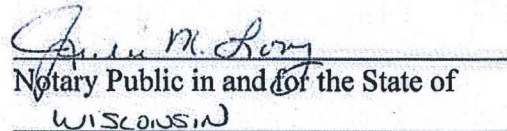 M.
Notary Public in and for the State of
WISCONSIN